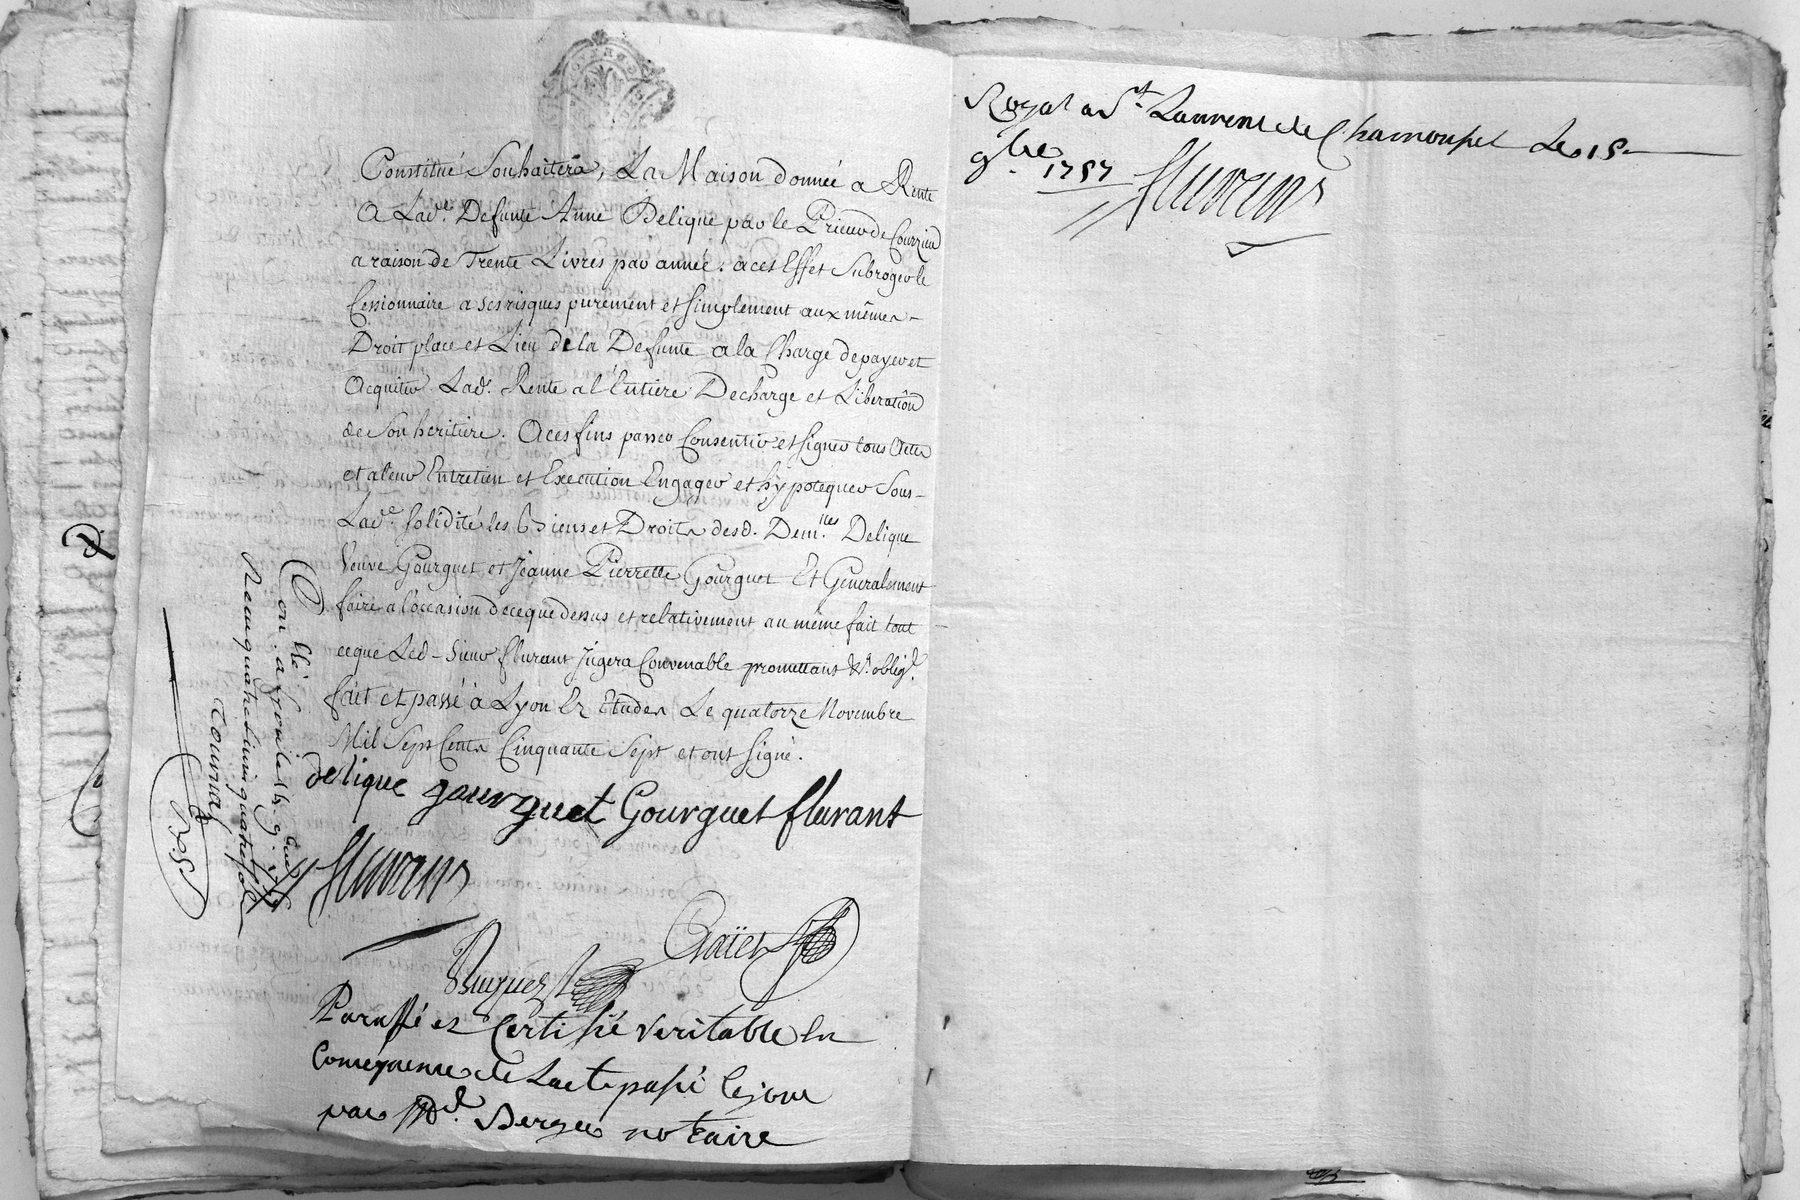 Constitué Souhaitera, La Maison donnée a Rente
a Lad.e Defunte Anne Delique par le Prieur de Courzieu
a raison de Trente Livres par année. a cet Effet Subroger le
Cessionnaire a ses risques purement et simplement aux mêmes
Droit place et Lieu de la Defunte a la Charge de payer et
acquiter Lad. Rente a l'Entiere Decharge et Liberation
de son heritiere. a ces fins passer Consentir et signer tous Actes
et a leur Entretien et Execution Engager et hypotequer Sous
Lad.e solidité les Biens et Droits desd. Dem.lles Delique
Veuve Gourguet et Jeanne Pierrette Gourguet Et Generalement
faire a l'occasion de ce que dessus et relativement au même fait tout
ce que Led. Sieur flurant Jugera Convenable promettant &.a oblig.t
fait et passé à Lyon Ez Etudes Le quatorze Novembre
Mil Sept Cents Cinquante Sept et ont signé.
delique gourguet Gourguet flurant
flurant
Paraffé et Certifié veritable en
Consequence de L'acte passé ce jour
par M.d Berger notaire
Royal a S.t Laurent de Chamousset Le 15
9bre 1757 flurant